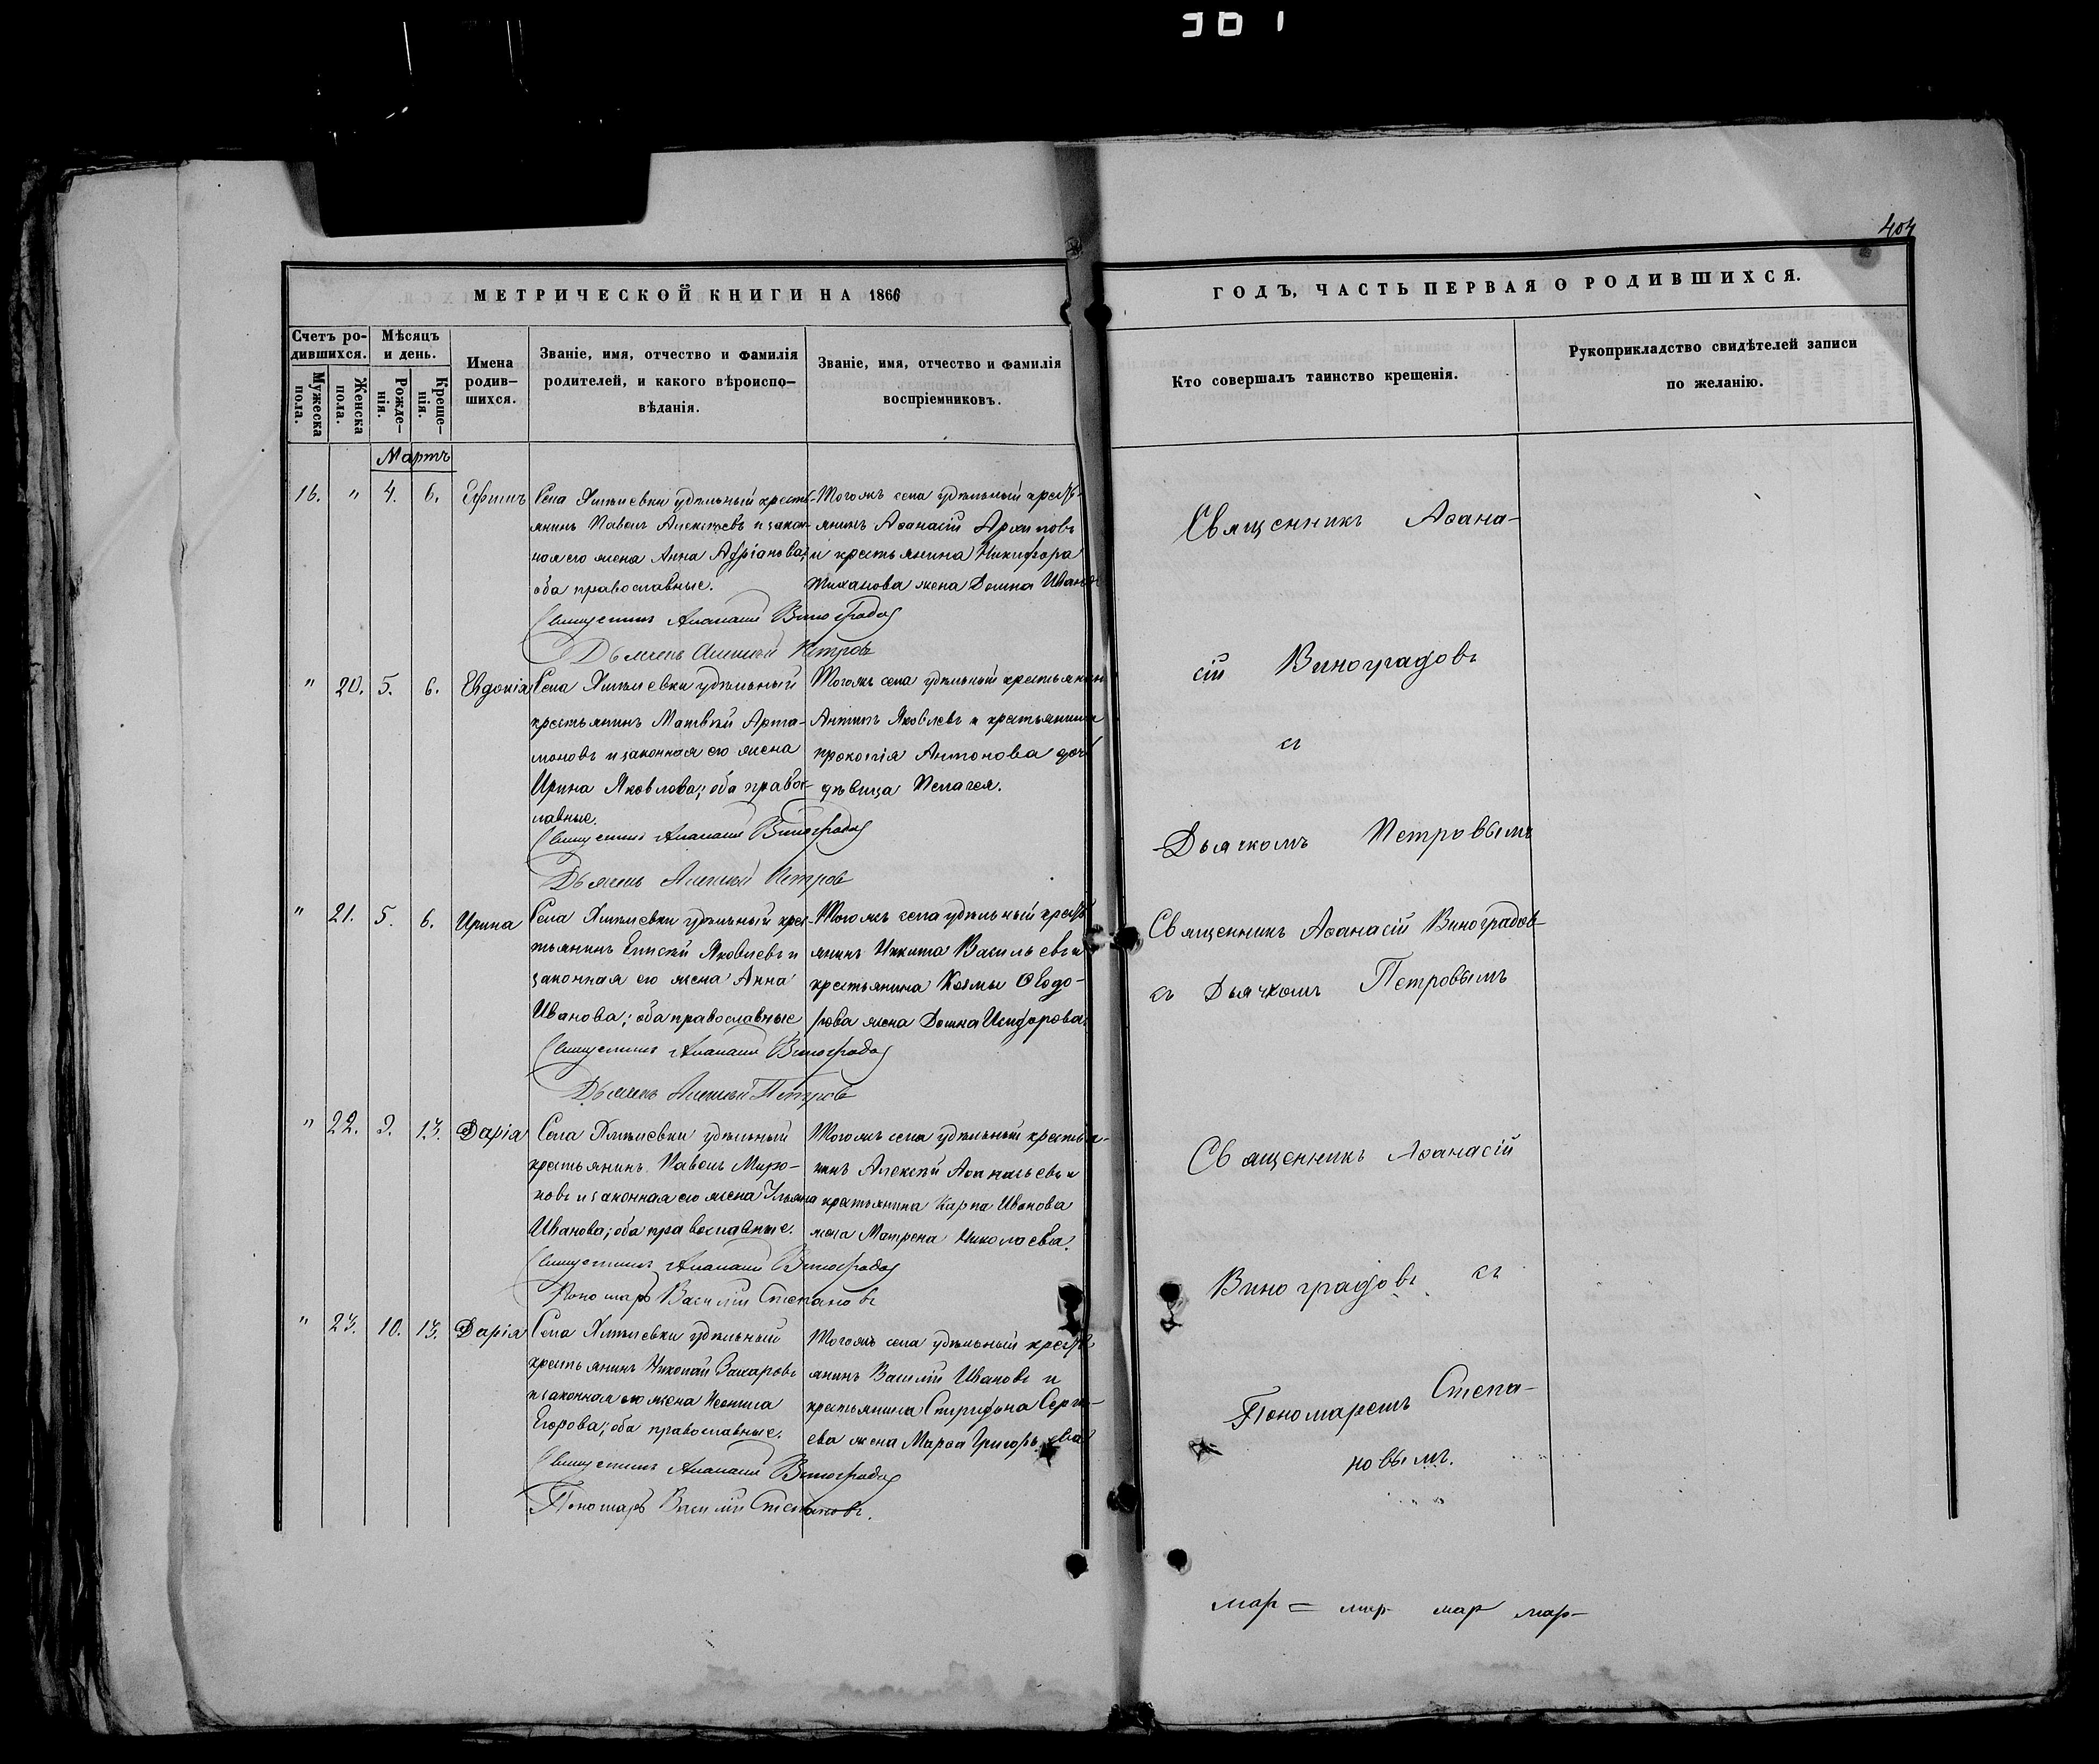 404
МЕТРИЧЕСКОЙ КНИГИ НА 1866
ГОДЪ, ЧАСТЬ ПЕРВАЯ О РОДИВШИХСЯ.
Счетъ ро-
дившихся.
Мужеска
пола.
Женска
пола.
Мѣсяцъ
и день.
Рожде-
нія.
Креще-
нія.
Имена
родив-
шихся.
Званіе, имя, отчество и фамилія
родителей, и какого вѣроиспо-
вѣданія.
Званіе, имя, отчество и фамилія
воспріемниковъ.
Кто совершалъ таинство крещенія.
Рукоприкладство свидѣтелей записи
по желанію.
Мартъ
16. " 4. 6. Ефимъ
Села удѣльный кресть-
янинъ Павелъ Алексѣевъ и закон-
ная его жена Анна Адріанова;
оба православные.
Тогожъ села удѣльный кресть-
янинъ Аѳанасій Архиповъ
и крестьянина Никифора
жена Домна Иванов
Священникъ Аѳанасій Виноградов
Дьячекъ Алексѣй Петровъ
" 20. 5. 6. Евдокія
Села удѣльный
крестьянинъ Матвѣй Арта-
моновъ и законная его жена
Ирина Яковлева; оба правос-
лавные.
Тогожъ села удѣльный крестьянинъ
Антипъ Яковлевъ и крестьянина
Прокопія Антонова дочь
дѣвица Пелагея.
Священникъ Аѳанасій Виноградов
Дьячекъ Алексѣй Петров
" 21. 5. 6. Ирина
Села удѣльный крес-
тьянинъ Яковлевъ и
законная его жена Анна
Иванова; оба православные
Тогожъ села удѣльный кресть-
янинъ Никита Васильевъ и
крестьянина Козмы Ѳедо-
рова жена Домна Исидорова.
Священникъ Аѳанасій Виноградов
Дьячекъ Алексѣй Петров
" 22. 9. 13. Дарія
Села удѣльный
крестьянинъ Павелъ Миро-
новъ и законная его жена Ульяна
Иванова; оба православные.
Тогожъ села удѣльный крестья-
нинъ Алексѣй Аѳанасьевъ и
крестьянина Карпа Иванова
жена Матрена Николаева.
Священникъ Аѳанасій Виноградов
Пономарь Василій Степановъ
" 23. 10. 13. Дарія
Села удѣльный
крестьянинъ Николай Захаровъ
и законная его жена Неонила
Егорова; оба православные.
Тогожъ села удѣльный кресть-
янинъ Василій Ивановъ и
крестьянина Спиридона Серге-
ева жена Марѳа Григорьева
Священникъ Аѳанасій Виноградов
Пономарь Василій Степановъ.
Священникъ Аѳана-
сій Виноградовъ
съ
Дьячкомъ Петровымъ
Священникъ Аѳанасій Виноградовъ
съ Дьячкомъ Петровымъ
Священникъ Аѳанасій
Виноградовъ съ
Пономаремъ Степа-
новымъ.
мар = мар мар мар-